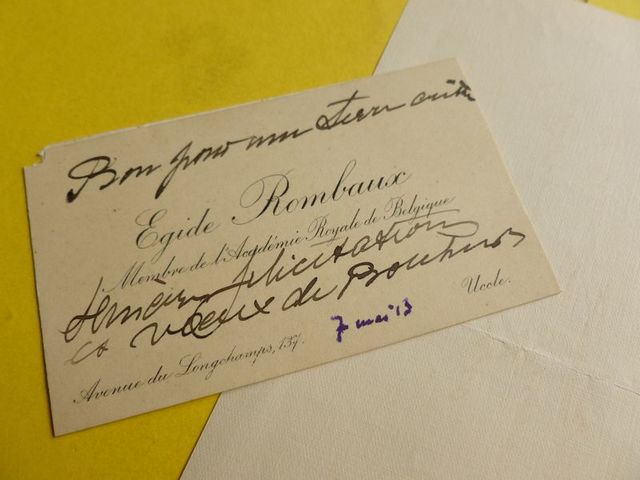 Bon pour une
Egide Rombaux
Membre de l'Académie Royale de Belgique
félicitations
et vœux de Bonheur
Uccle.
7 mai 13
Avenue du Longchamps, 137.